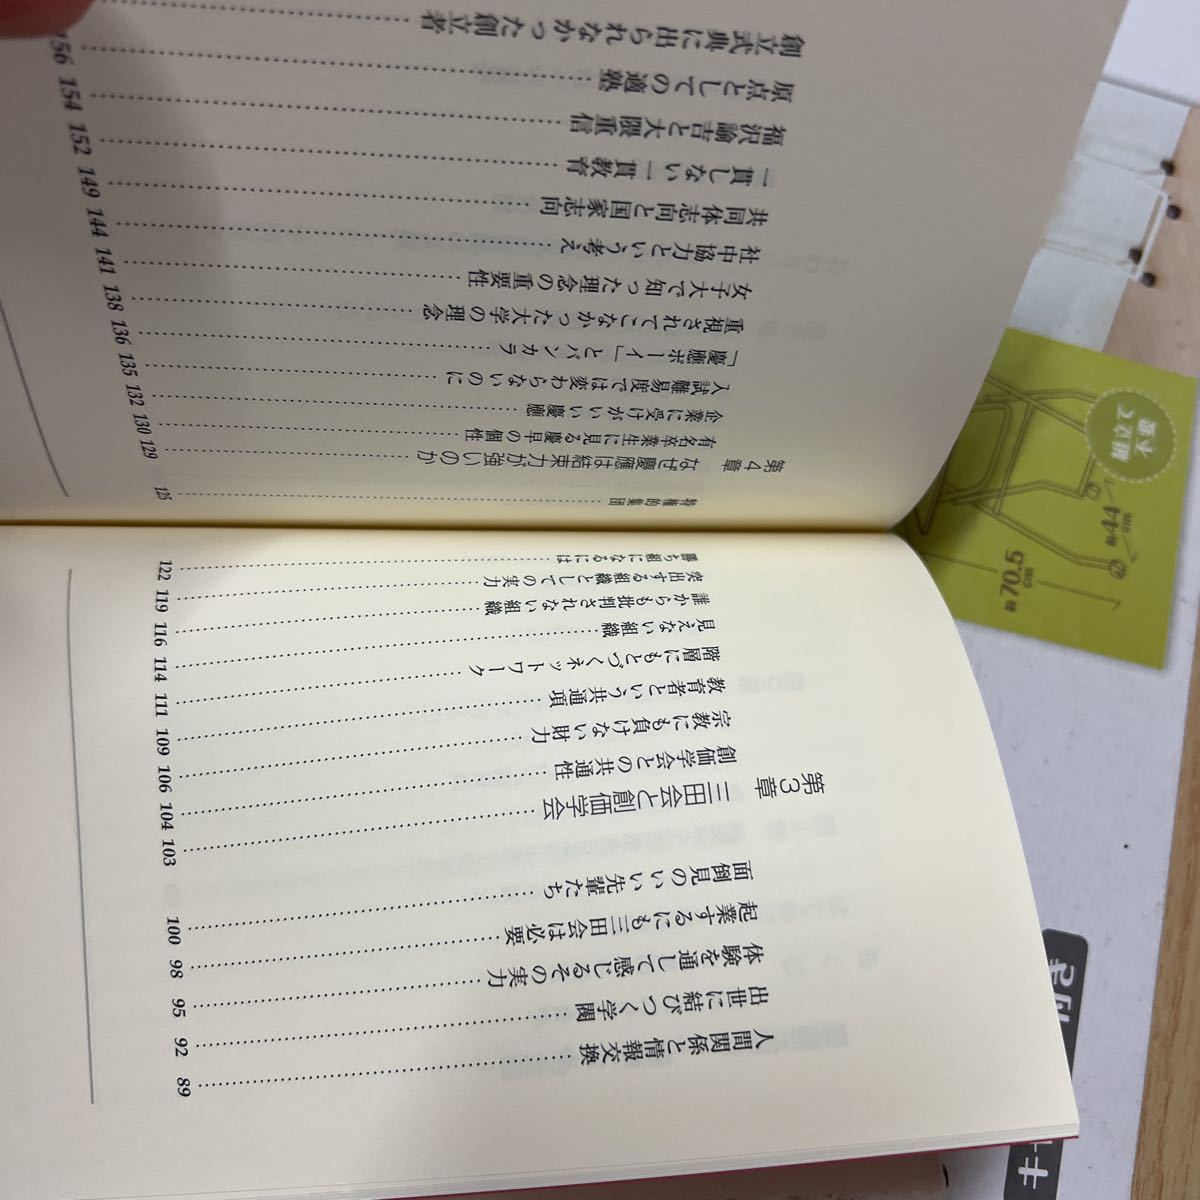 人間関係と情報交換 89
出世に結びつく学閥 92
体験を通して感じるその実力 95
起業するにも三田会は必要 98
面倒見のいい先輩たち 100
第3章 三田会と創価学会 103
創価学会との共通性 104
宗教にも負けない財力 106
教育者という共通項 109
階層にもとづくネットワーク 111
見えない組織 114
誰からも批判されない組織 116
突出する組織としての実力 119
勝ち組になるには 122
特権的集団 125
第4章 なぜ慶應は結束力が強いのか 129
有名卒業生に見る慶早の個性 130
企業に受けがいい慶應 132
入試難易度では変わらないのに 135
「慶應ボーイ」とバンカラ 136
重視されてこなかった大学の理念 138
女子大で知った理念の重要性 141
社中協力という考え 144
共同体志向と国家志向 149
一貫しない一貫教育 152
福沢諭吉と大隈重信 154
原点としての適塾 156
創立式典に出られなかった創立者
約70.5cm
約44cm